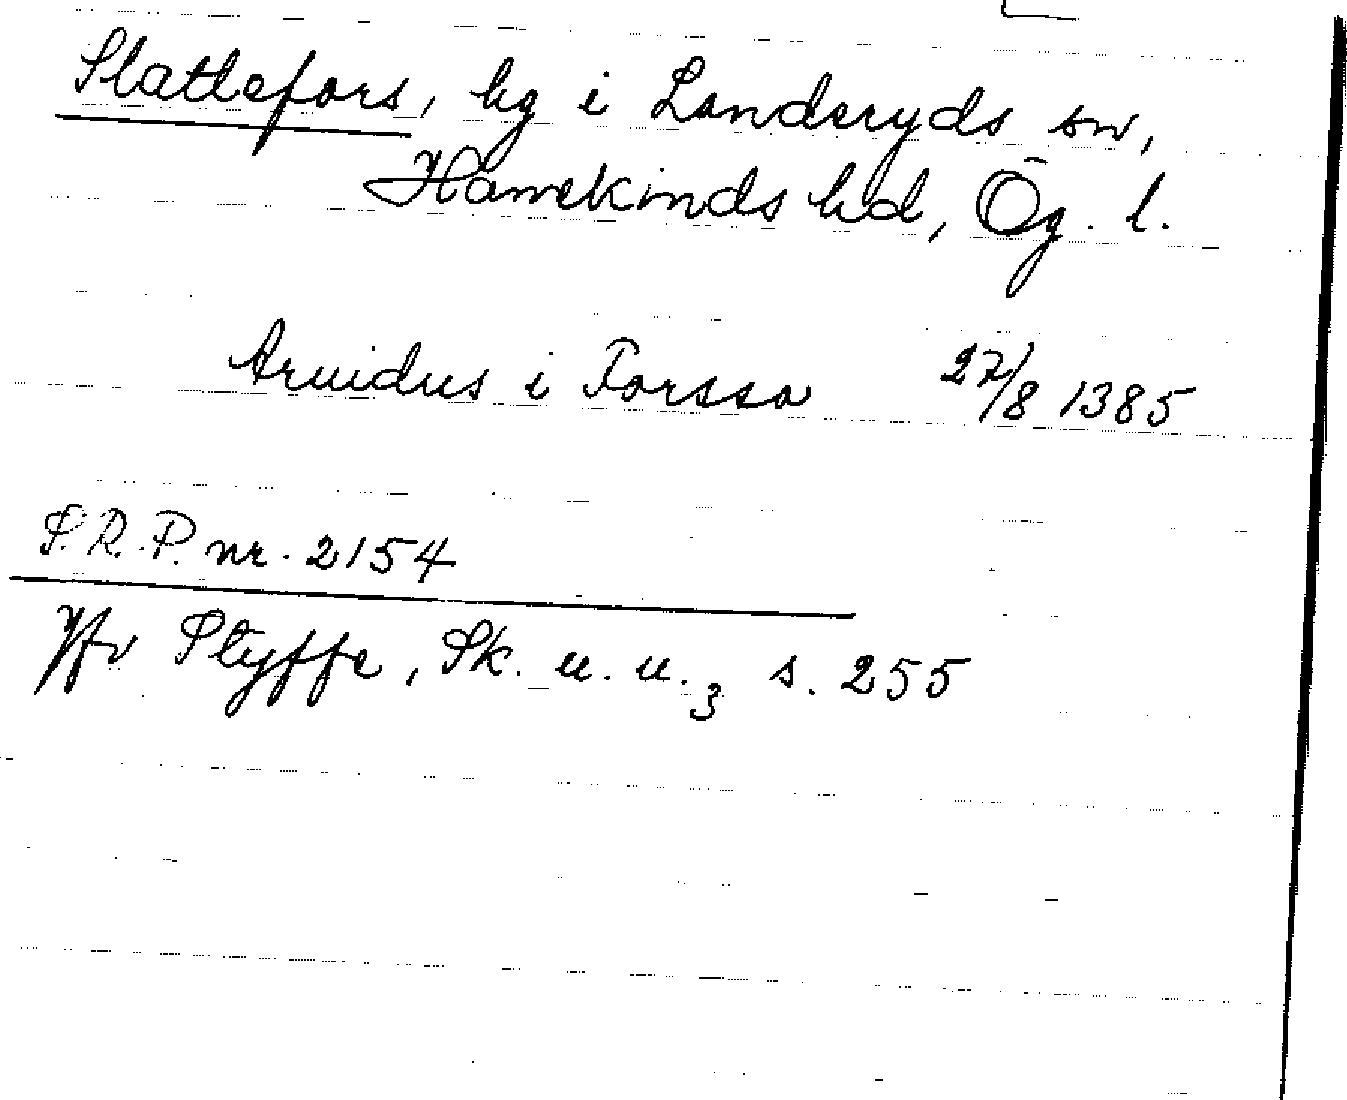 Slattefors, by i Landeryds sn,
Hanekinds hd, Ög. l.
Aruidus i Forssa 27/8 1385
S.R.P. nr. 2154
Jfr Styffe, Sk. u. u.3 s. 255